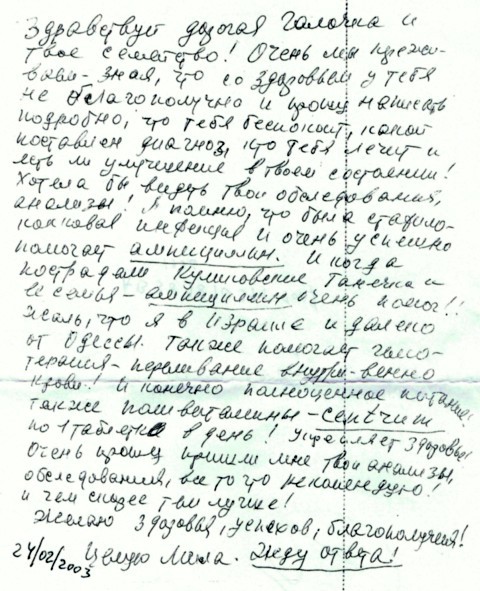 Здравствуй дорогая Галочка и
твое семейство! Очень мы пережи-
ваем - зная, что со здоровьем у тебя
не благополучно и прошу написать
подробно, что тебя беспокоит, какой
поставлен диагноз, кто тебя лечит и
есть ли улучшение в твоем состоянии!
Хотела бы видеть твои обследования,
анализы! Я помню, что была стафило-
кокковая инфекция и очень успешно
помогает ампициллин. И когда
пострадали Куликовские Танечка и
семья - ампициллин очень помог!!
Жаль, что я в Израиле и далеко
от Одессы. Также помогает гемо-
терапия - переливание внутри-венно
крови! И конечно полноценное питание
также поливитамины -
по 1 таблетке в день! Укрепляет здоровье!
Очень прошу пришли мне твои анализы,
обследования, все то что рекомендую!
и чем скорее тем лучше!
Желаю здоровья, успехов, благополучия!
24/02/2003 Целую Мила. Жду ответа!